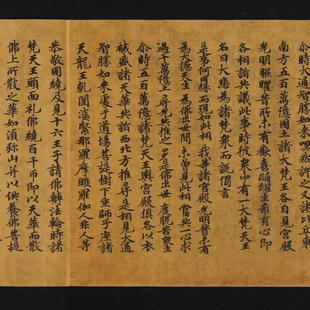 尒時大通智勝如來嘿然許之又諸比丘東
南方五百萬億國土諸大梵王各自見宮殿
光明照曜昔所未有歡喜踊躍生希有心即
各相詣共議此事時彼衆中有一大梵天王
名曰大悲為諸梵衆而說偈言
是事何因緣 而現如此相 我等諸宮殿 光明昔未有
為大德天生 為佛出世間 未曾見此相 當共一心求
過千萬億土 尋光共推之 多是佛出世 度脫苦衆生
尒時五百萬億諸梵天王與宮殿俱各以衣
祴盛諸天華共詣西北方推尋是相見大通
智勝如來處于道場菩提樹下坐師子座諸
天龍王乾闥婆緊那羅摩睺羅伽人非人等
恭敬圍繞及見十六王子請佛轉法輪時諸
梵天王頭面礼佛繞百千帀即以天華而散
佛上所散之華如須弥山并以供養佛菩提